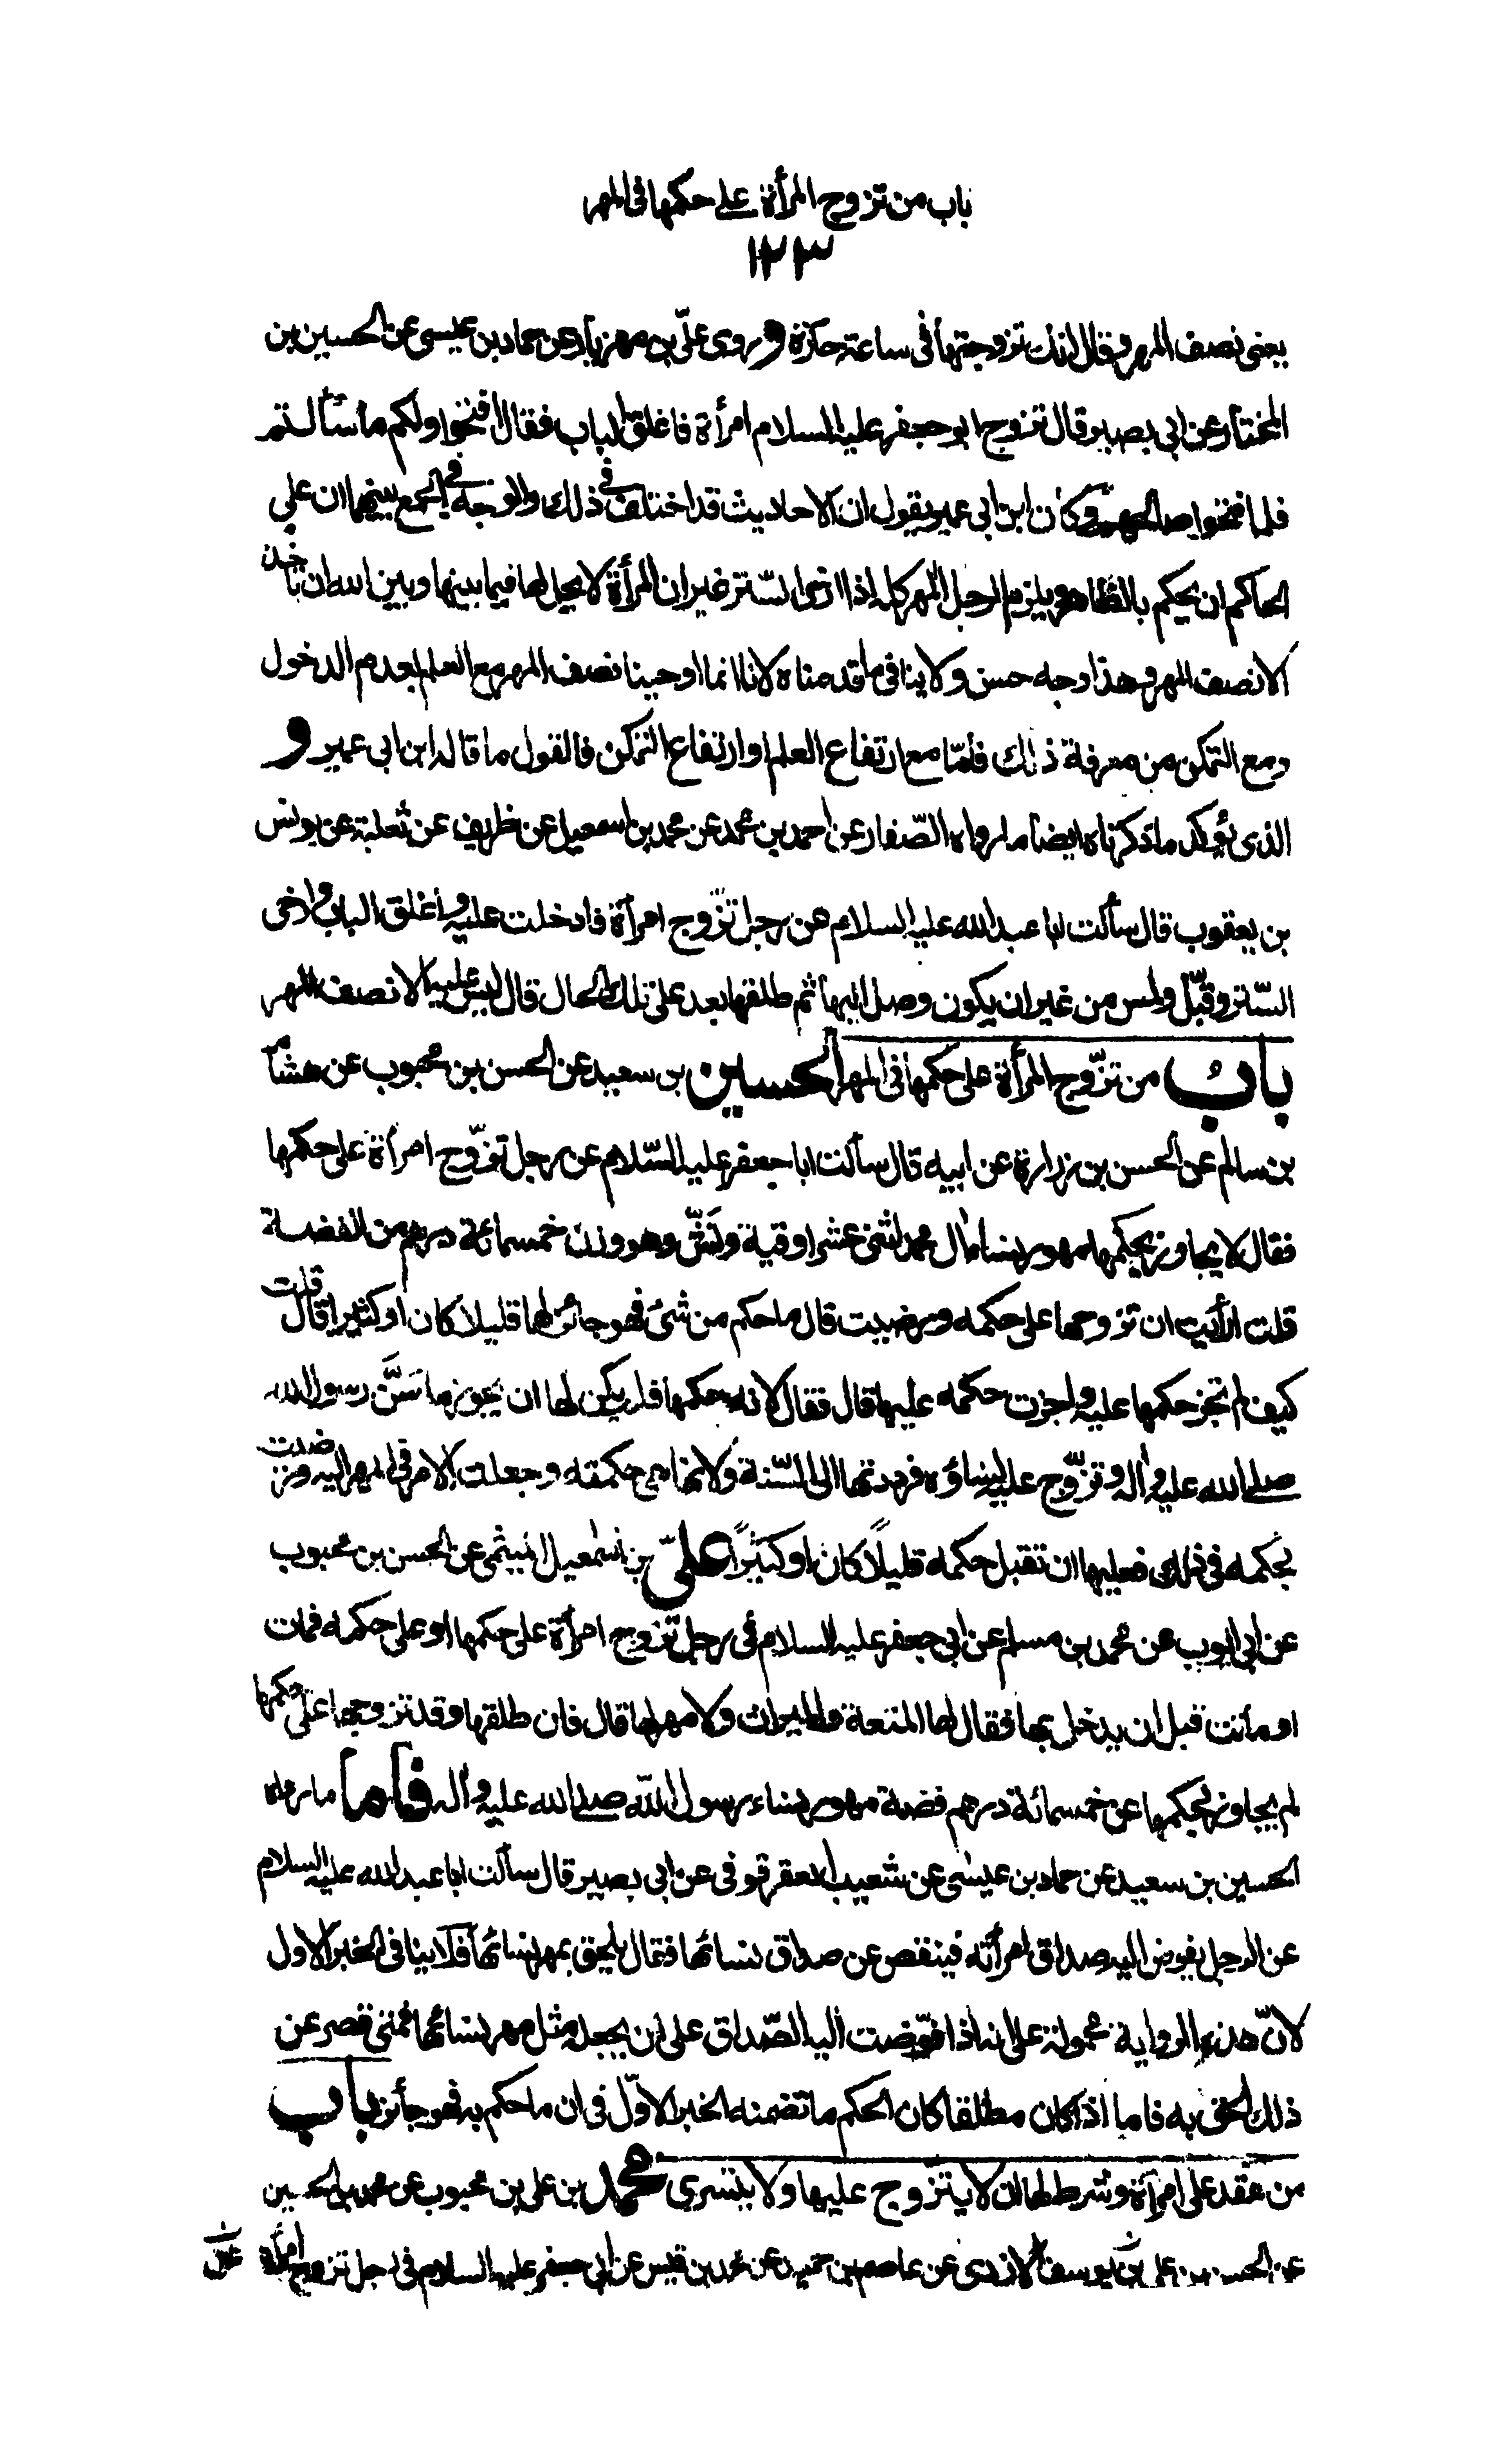 باب من تزوج المرأة على حكمها فى المهر
١٢٣
يعنى نصف المهر وقال انك تزوجتها فى ساعة حارة وروى علىّ بن مهزيار عن حماد بن عيسى عن الحسين بن
المختار عن ابى بصير قال تزوج ابو جعفر عليه السلام امرأة فاغلق الباب فقال افتحوا ولكم ما سألتم
فلما فتحوا صالحهم وكان ابن ابى عمير يقول ان الاحاديث قد اختلف فى ذلك والوجه فى الجمع بينهما ان على
الحاكم ان يحكم بالظاهر ويلزم الرجل المهر كله اذا ارخى الستر غير ان المرأة لا يحل لها فيما بينها وبين الله ان تأخذ
الا نصف المهر وهذا وجه حسن ولا ينافى ما قدمناه لانا انما اوجبنا نصف المهر مع العلم بعدم الدخول
ومع التمكن من معرفة ذلك فأمّا مع ارتفاع العلم او ارتفاع التمكن فالقول ما قاله ابن ابى عمير و
الذى يؤكد ما ذكرناه ايضا ما رواه الصّفار عن احمد بن محمد عن محمد بن اسمعيل عن ظريف عن ثعلبة عن يونس
بن يعقوب قال سألت ابا عبد الله عليه السلام عن رجل تزّوج امرأة فادخلت عليه واغلق الباب وارخى
السّتر وقبّل ولمس من غير ان يكون وصل اليها ثم طلقها بعد على تلك الحال قال ليس عليه الا نصف المهر
باب من تزّوج المرأة على حكمها فى المهر الحسين بن سعيد عن الحسن بن محبوب عن هشام
بن سالم عن الحسن بن زرارة عن ابيه قال سألت ابا جعفر عليه السّلام عن رجل تزّوج امرأة على حكمها
فقال لا يجاوز بحكمها مهور نساء آل محمد اثنى عشر اوقية ونشّ وهو وزن خمسمائة درهم من الفضة
قلت ارأيت ان تزوجها على حكمه ورضيت قال ما حكم من شئ فهو جائز لها قليلا كان او كثيرا قال قلت
كيف لم تجز حكمها عليه واجزت حكمه عليها قال فقال لانه حكمها فلم يكن لها ان تجوز ما سَنَّ رسول الله
صلى الله عليه وآله وتزّوج عليه نساؤه فرددتها الى السّنة ولانها هى حكمته وجعلت الامر فى المهر اليه ورضيت
بحكمه فى ذلك فعليها ان تقبل حكمه قليلاً كان او كثيراً علىّ بن اسمعيل الميثمى عن الحسن بن محبوب
عن ابى ايوب عن محمد بن مسلم عن ابى جعفر عليه السلام فى رجل تزوج امرأة على حكمها او على حكمه فمات
او ماتت قبل ان يدخل بها فقال لها المتعة والميراث ولا مهر لها قال فان طلقها وقد تزوجها على حكمها
لم يجاوز بحكمها عن خمسمائة درهم فضة مهور نساء رسول اللّه صلى الله عليه وآله فاما ما رواه
الحسين بن سعيد عن حماد بن عيسى عن شعيب العقرقوفى عن ابى بصير قال سألت ابا عبد الله عليه السلام
عن الرجل يفوض اليه صداق امرأته فينقص عن صداق نسائها فقال يلحق بمهر نسائها فلا ينافى الخبر الاول
لانّ هذه الرواية محمولة على انه اذا فوّضت اليه الصّداق على ان يجعله مثل مهر نسائها فمتى قصر عن
ذلك الحق به فاما اذا كان مطلقا كان الحكم ما تضمنه الخبر الاوّل فى ان ما حكم به فهو جائز باب
من عقد على امرأة وشرط لها ان لا يتزّوج عليها ولا يتسرى محمد بن على بن محبوب عن محمد بن الحسين
عن الحسن بن على بن يوسف الازدى عن عاصم بن حميد عن محمد بن قيس عن ابى جعفر عليه السلام فى رجل تزوج امرأة